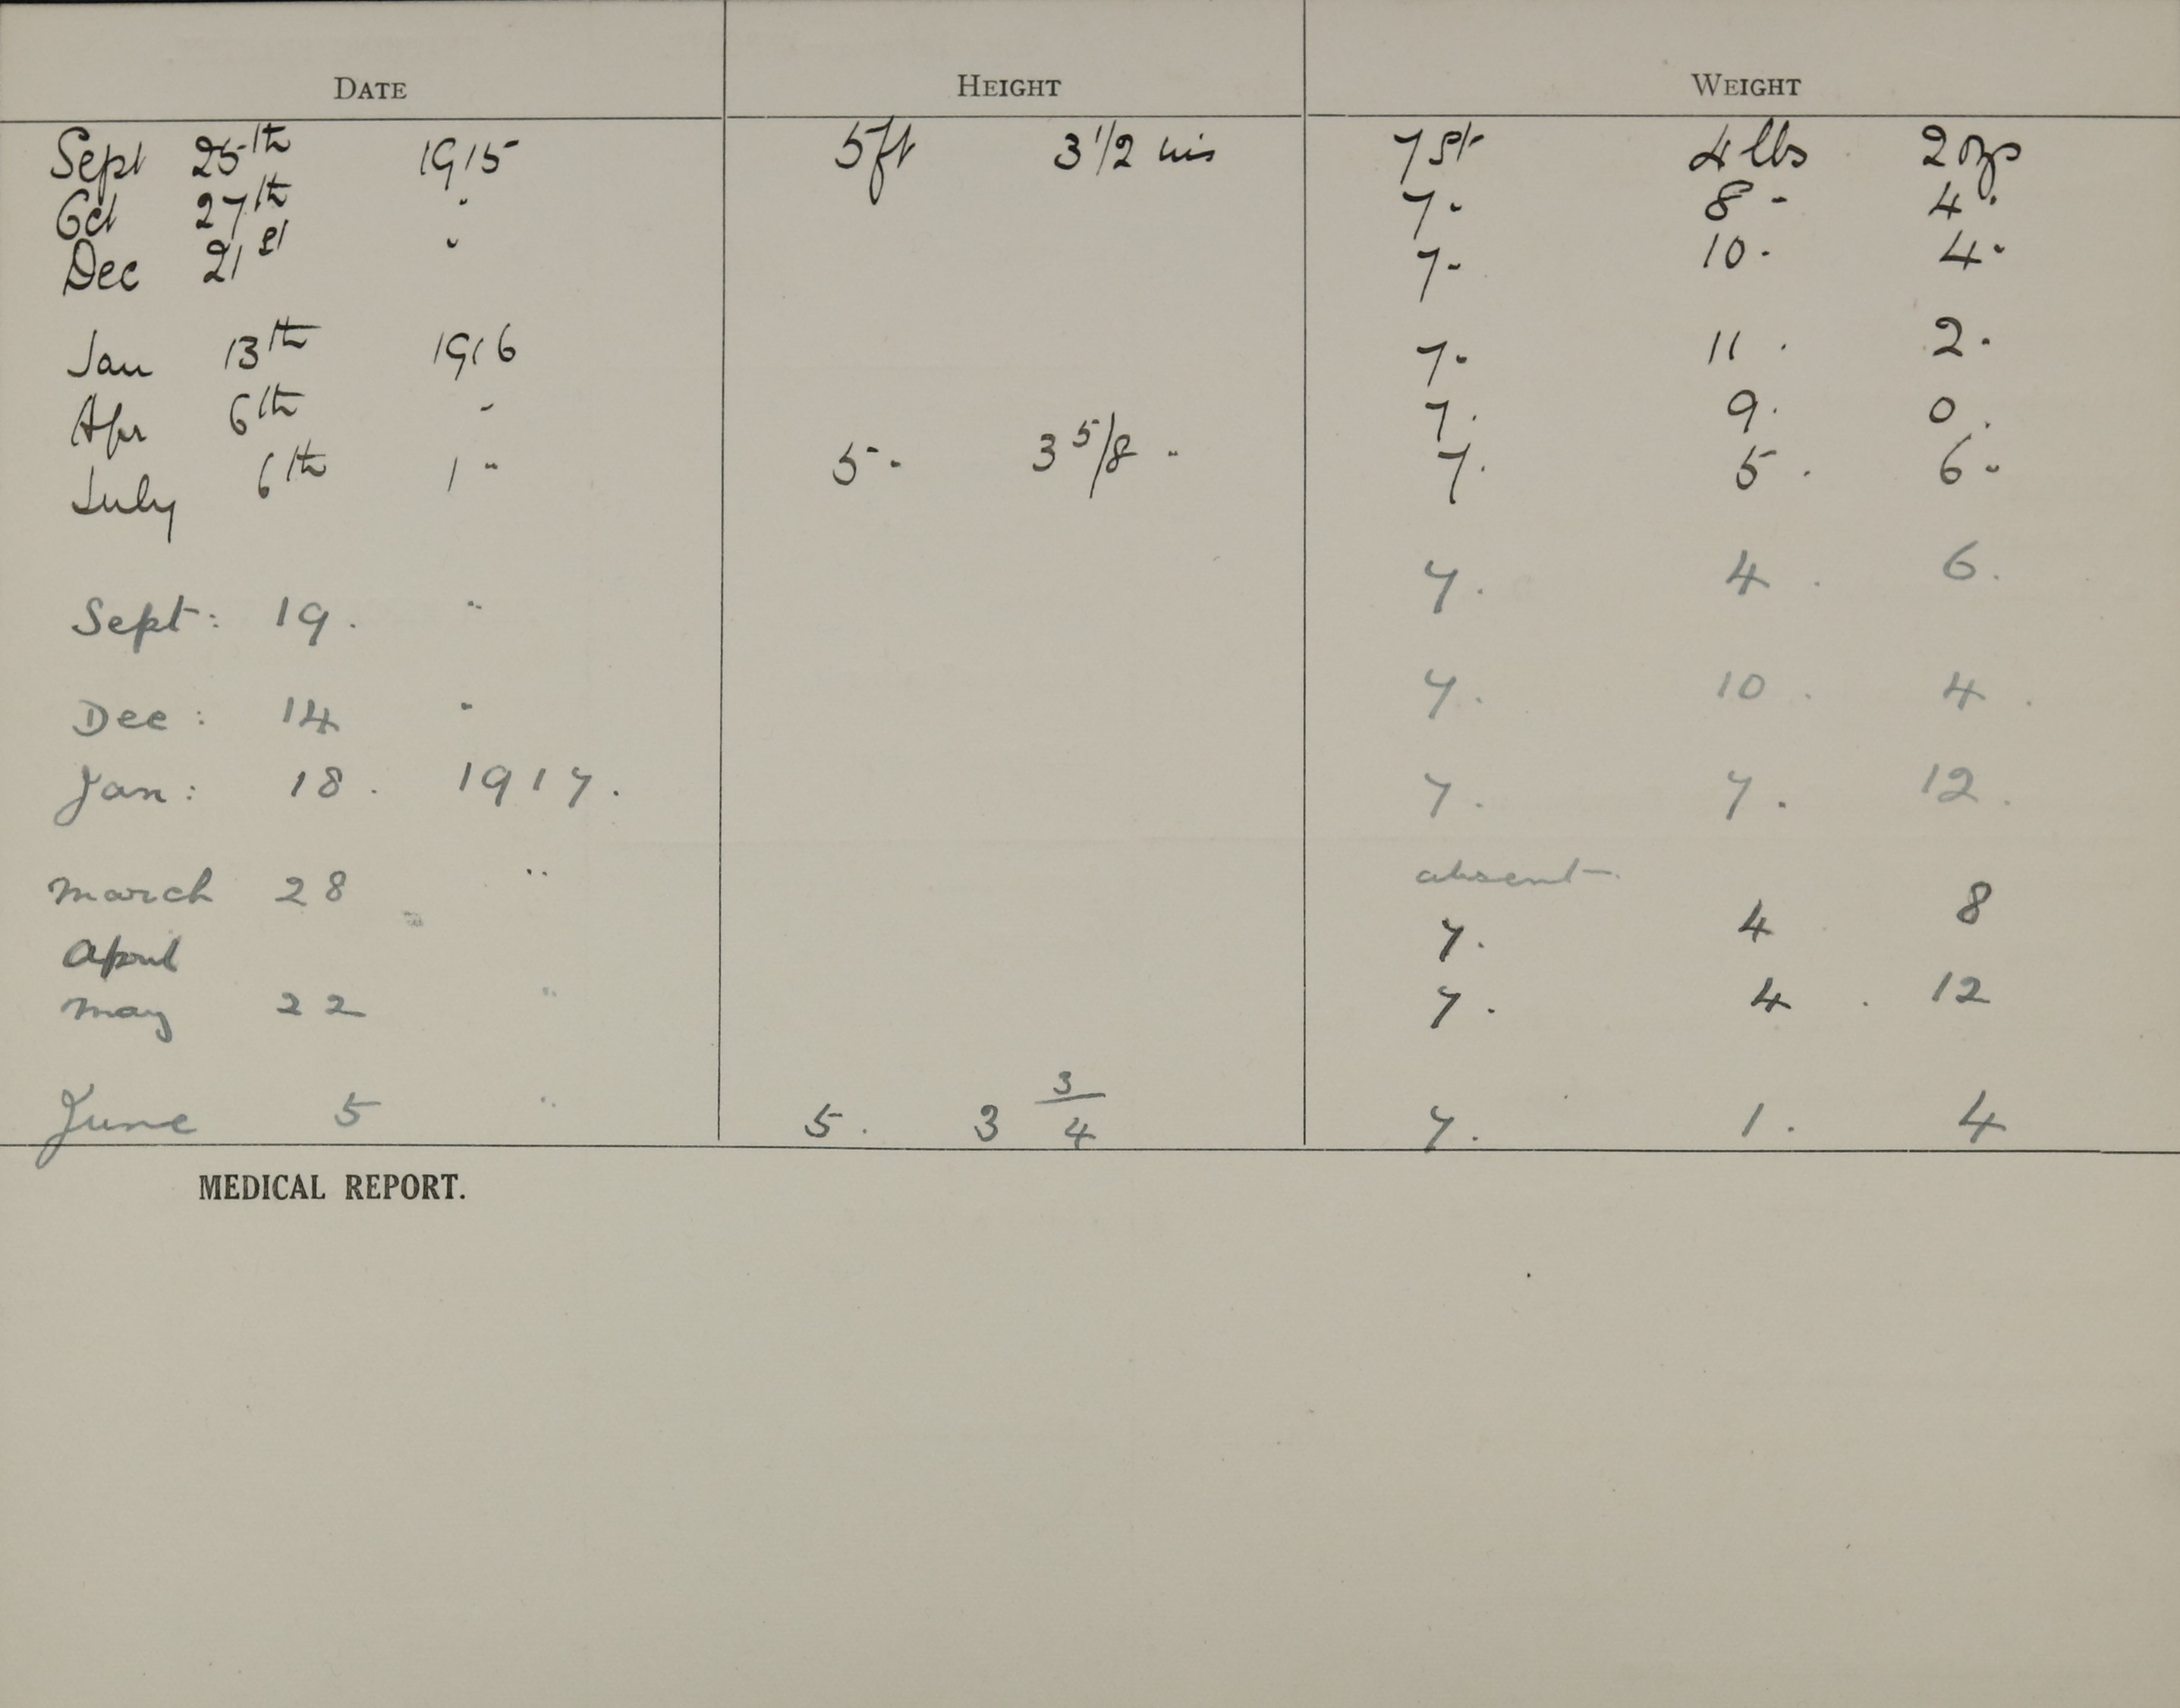 DATE HEIGHT WEIGHT
Sept 25th 1915 5ft 3 1/2 ins 7 st 4 lbs 2 ozs
Oct 27th " 7 " 8 " 4 "
Dec 21st " 7 " 10 " 4 "
Jan 13th 1916 7 " 11 " 2 "
Apr 6th " 7 " 9 " 0 "
July 6th 1 " 5 " 3 5/8 " 7 " 5 " 6 "
Sept: 19. " 7. 4. 6.
Dec: 14 " 7. 10. 4.
Jan: 18. 1917. 7. 7. 12.
March 28 " absent
April 7. 4 8
May 22 " 7. 4. 12
June 5 " 5. 3 3/4 7. 1. 4
MEDICAL REPORT.